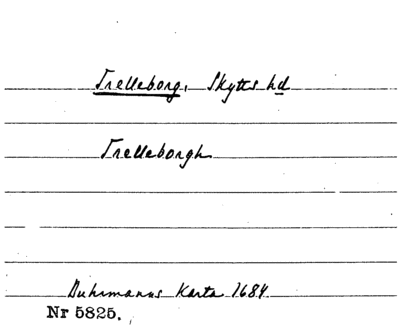 Trelleborg, Skytts hd
Trelleborgh
Buhrmanns Karta 1684
Nr 5825.